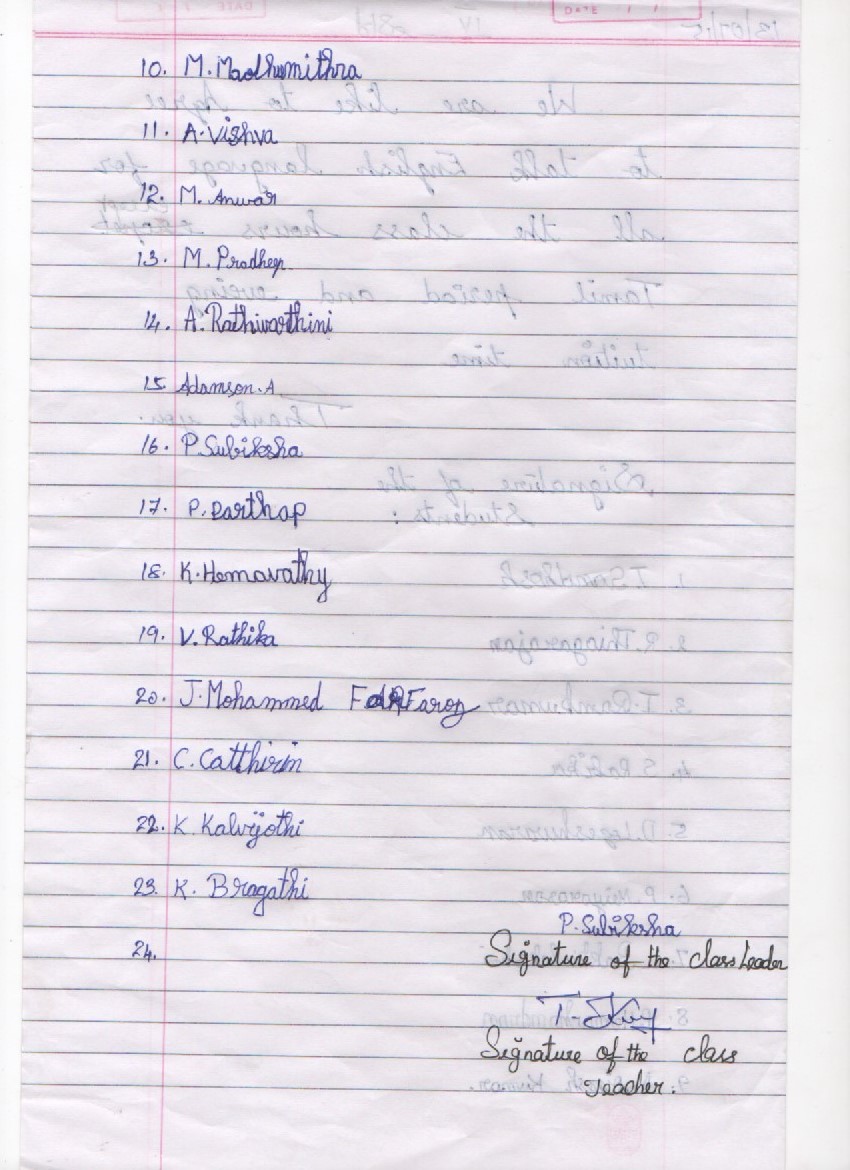 DATE
10. M. Madhumithra
11. A. Vishva
12. M. Anwar
13. M. Pradheep
14. A. Rathivarthini
15. Adamson. A
16. P. Subiksha
17. P. Parthap
18. K. Hemavathy
19. V. Rathika
20. J. Mohammed Farog
21. C. Catthirin
22. K. Kalvijothi
23. K. Bragathi
P. Subiksha
24.
Signature of the class Leader
Signature of the class
Teacher.